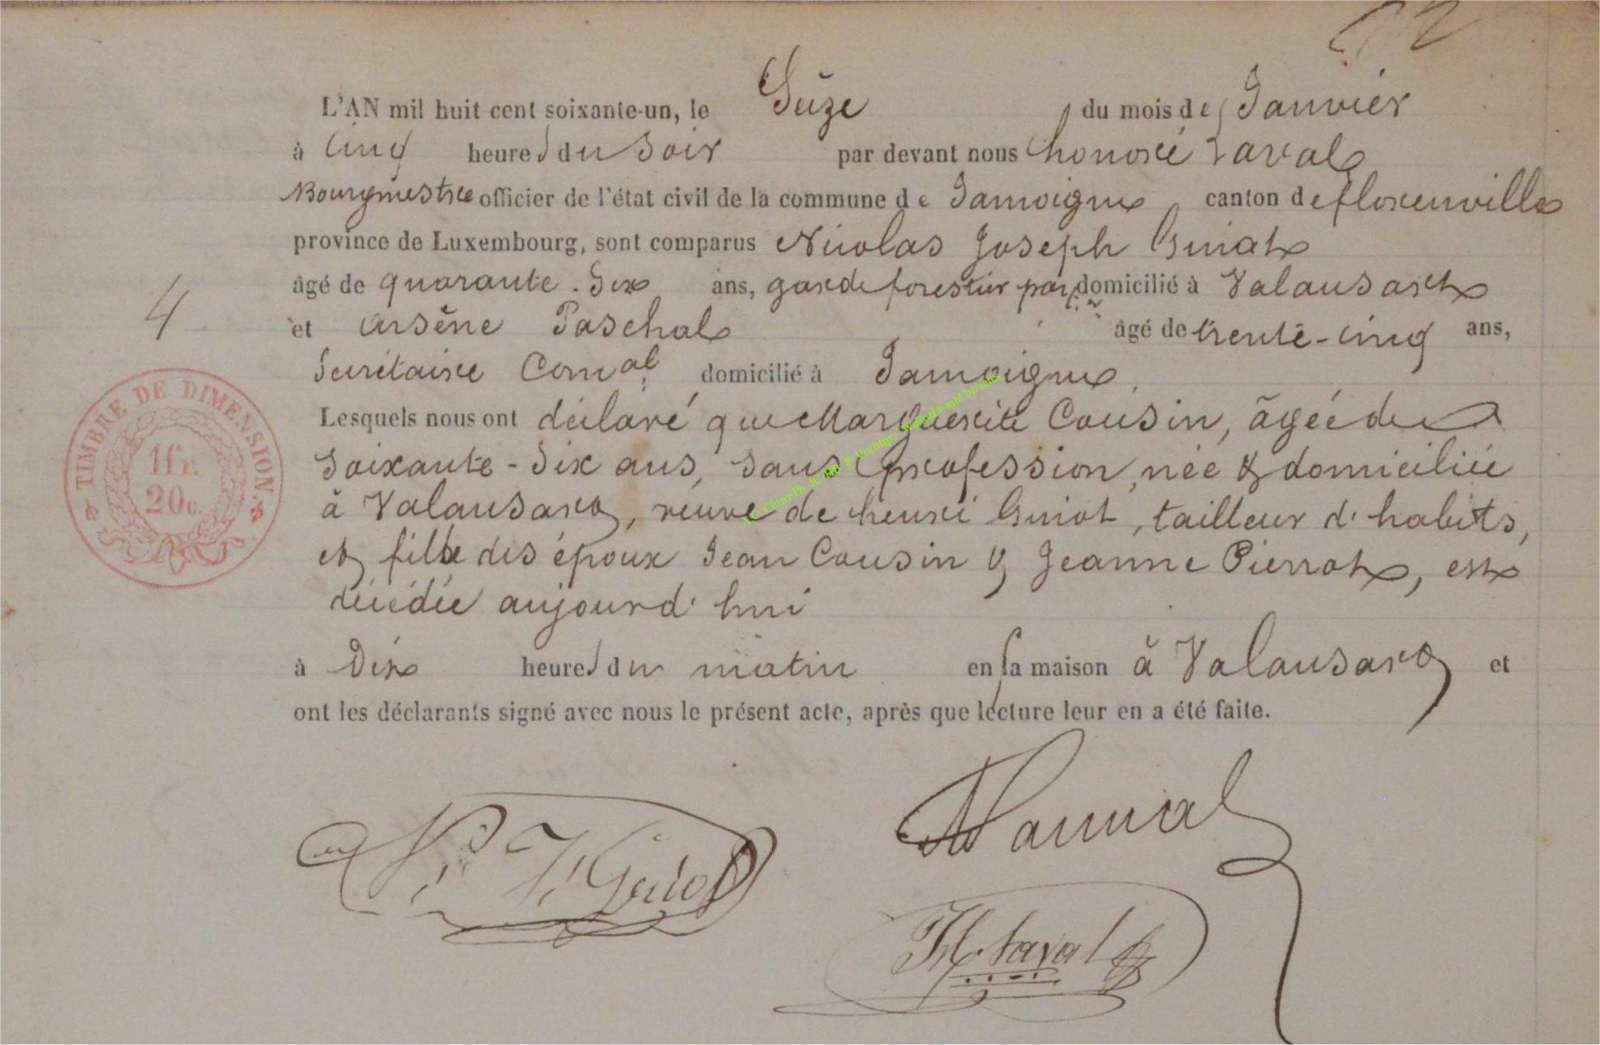 L'AN mil huit cent soixante-un, le Seize du mois de Janvier
à cinq heures du soir par devant nous honoré Laval
Bourgmestre officier de l'état civil de la commune de Jamoigne canton de florenville
province de Luxembourg, sont comparus Nicolas Joseph Guiot
âgé de quarante-six ans, garde forestier domicilié à Valansart
4
et Arsène Paschal âgé de trente-cinq ans,
Secrétaire Comal domicilié à Jamoigne.
TIMBRE DE DIMENSION.
1fr.
20c.
Lesquels nous ont déclaré que Marguerite Cousin, âgée de
soixante-six ans, sans profession, née & domiciliée
à Valansart, veuve de henri Guiot, tailleur d'habits,
et fille des époux Jean Cousin & Jeanne Pierrot, est
décédée aujourd'hui
à Dix heures du matin en sa maison à Valansart et
ont les déclarants signé avec nous le présent acte, après que lecture leur en a été faite.
N. J. Guiot
H Laval